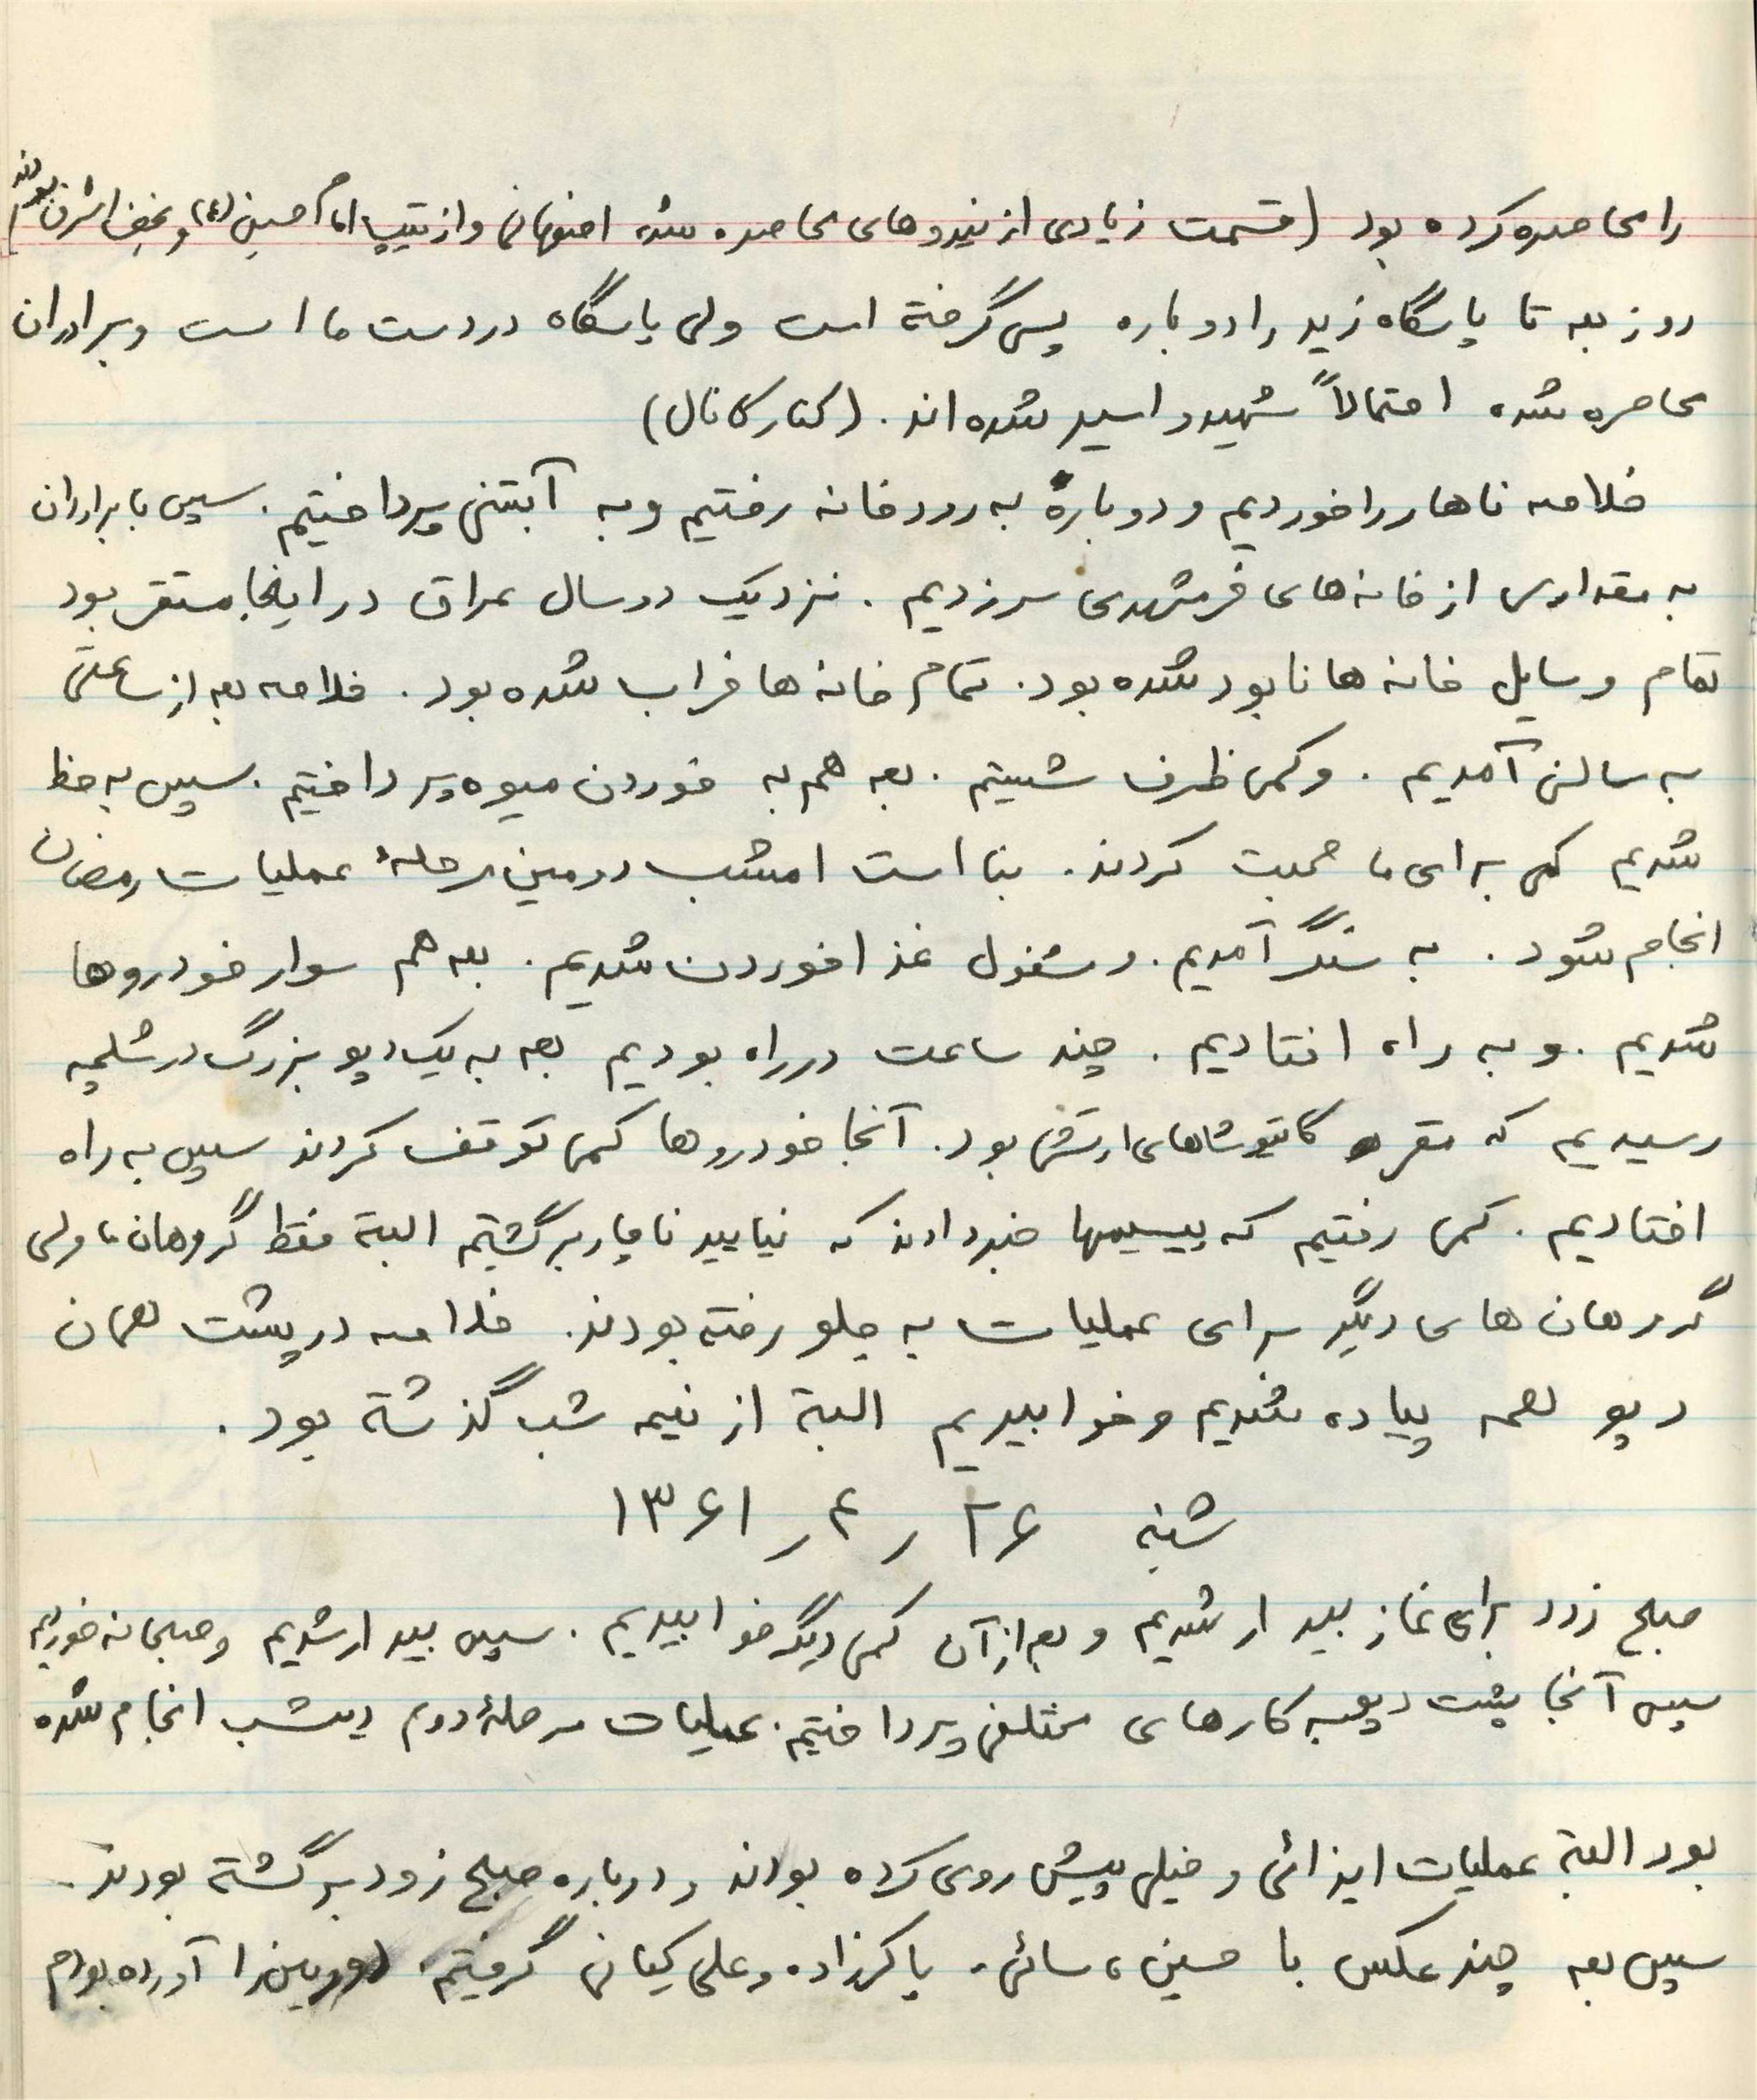 را محاصره کرده بود (قسمت زیادی از نیروهای محاصره شده اصفهانی و از تیپ امام حسین (ع) و نجف اشرف بودند)
روز بعد تا پاسگاه زید را دوباره پس گرفته است ولی پاسگاه در دست ما است و برادران
محاصره شده احتمالاً شهید و اسیر شده اند. (کنار کانال)
خلاصه ناهار را خوردیم و دوباره به رودخانه رفتیم و به آبتنی پرداختیم. سپس با برادران
به مقداری از خانه های خرمشهری سر زدیم. نزدیک دو سال عراق در اینجا مستقر بود
تمام وسایل خانه ها نابود شده بود. تمام خانه ها خراب شده بود. خلاصه بعد از ساعتی
به سالن آمدیم. و کمی ظرف شستیم. بعد هم به خوردن میوه پرداختیم. سپس به خط
شدیم کمی برای ما صحبت کردند. بنا است امشب دومین مرحلهٔ عملیات رمضان
انجام شود. به سنگر آمدیم. و مشغول غذا خوردن شدیم. بعد هم سوار خودروها
شدیم. و به راه افتادیم. چند ساعت در راه بودیم بعد به یک دپو بزرگ در شلمچه
رسیدیم که مقر کاتیوشاهای ارتش بود. آنجا خودروها کمی توقف کردند سپس به راه
افتادیم. کمی رفتیم که بیسیمها خبر دادند که نیایید ناچار برگشتیم البته فقط گروهان ما ولی
گروهان های دیگر برای عملیات به جلو رفته بودند. خلاصه در پشت همان
دپو همه پیاده شدیم و خوابیدیم البته از نیمه شب گذشته بود.
شنبه ۲۶ ر ۴ ر ۱۳۶۱
صبح زود برای نماز بیدار شدیم و بعد از آن کمی دیگر خوابیدیم. سپس بیدار شدیم و صبحانه خوردیم
سپس آنجا پشت دپو به کارهای مختلفی پرداختیم. عملیات مرحلهٔ دوم دیشب انجام شده
بود البته عملیات ایذائی و خیلی پیش روی کرده بودند و دوباره صبح زود برگشته بودند.
سپس بعد چند عکس با حسین، سائی، پاکزاده و علی کیانی گرفتیم. دوربین را آورده بودم